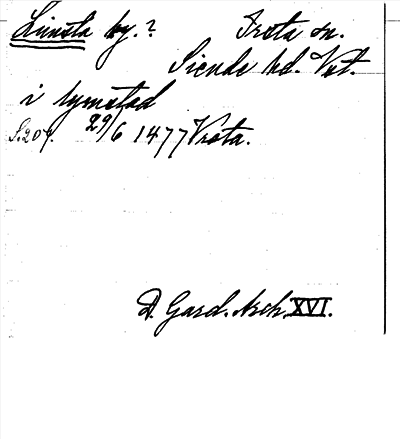 Limsta by.? Irsta sn.
Siende hd. Vst.
i lymstad
S. 209. 29/6 1477 Vråta.
D. Gard. Arch. XVI.